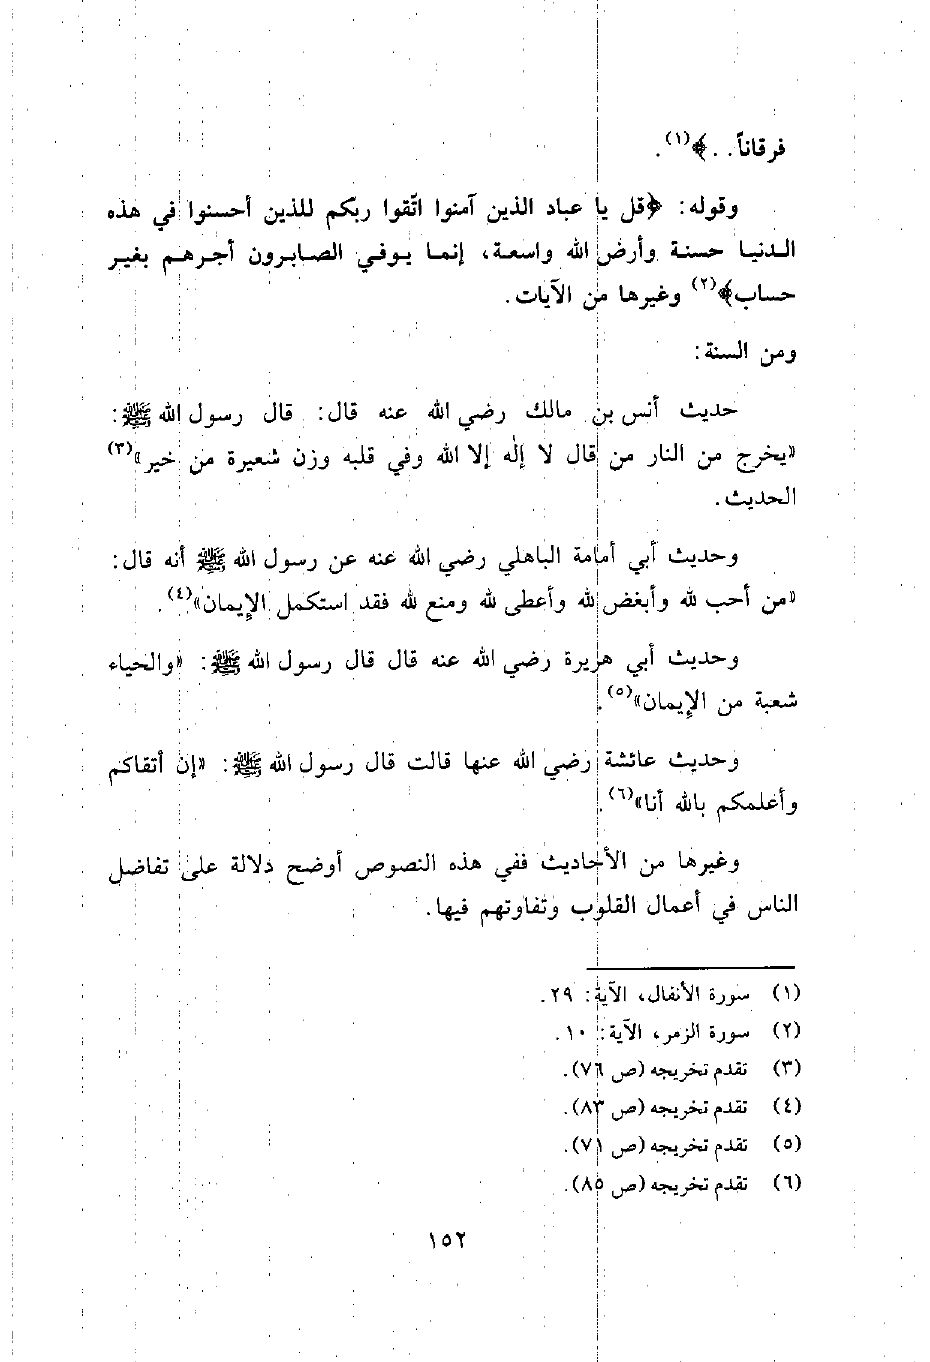 فرقاناً . . ﴾(١).
وقوله: ﴿قل يا عباد الذين آمنوا اتّقوا ربكم للذين أحسنوا في هذه
الدنيا حسنة وأرض الله واسعة، إنما يوفي الصابرون أجرهم بغير
حساب﴾(٢) وغيرها من الآيات.
ومن السنة:
حديث أنس بن مالك رضي الله عنه قال: قال رسول الله ﷺ:
«يخرج من النار من قال لا إلٰه إلا الله وفي قلبه وزن شعيرة من خير»(٣)
الحديث.
وحديث أبي أمامة الباهلي رضي الله عنه عن رسول الله ﷺ أنه قال:
«من أحب لله وأبغض لله وأعطى لله ومنع لله فقد استكمل الإيمان»(٤).
وحديث أبي هريرة رضي الله عنه قال قال رسول الله ﷺ: «والحياء
شعبة من الإيمان»(٥).
وحديث عائشة رضي الله عنها قالت قال رسول الله ﷺ: «إن أتقاكم
وأعلمكم بالله أنا»(٦).
وغيرها من الأحاديث ففي هذه النصوص أوضح دلالة على تفاضل
الناس في أعمال القلوب وتفاوتهم فيها.
(١) سورة الأنفال، الآية: ٢٩.
(٢) سورة الزمر، الآية: ١٠.
(٣) تقدم تخريجه (ص ٧٦).
(٤) تقدم تخريجه (ص ٨٣).
(٥) تقدم تخريجه (ص ٧١).
(٦) تقدم تخريجه (ص ٨٥).
١٥٢